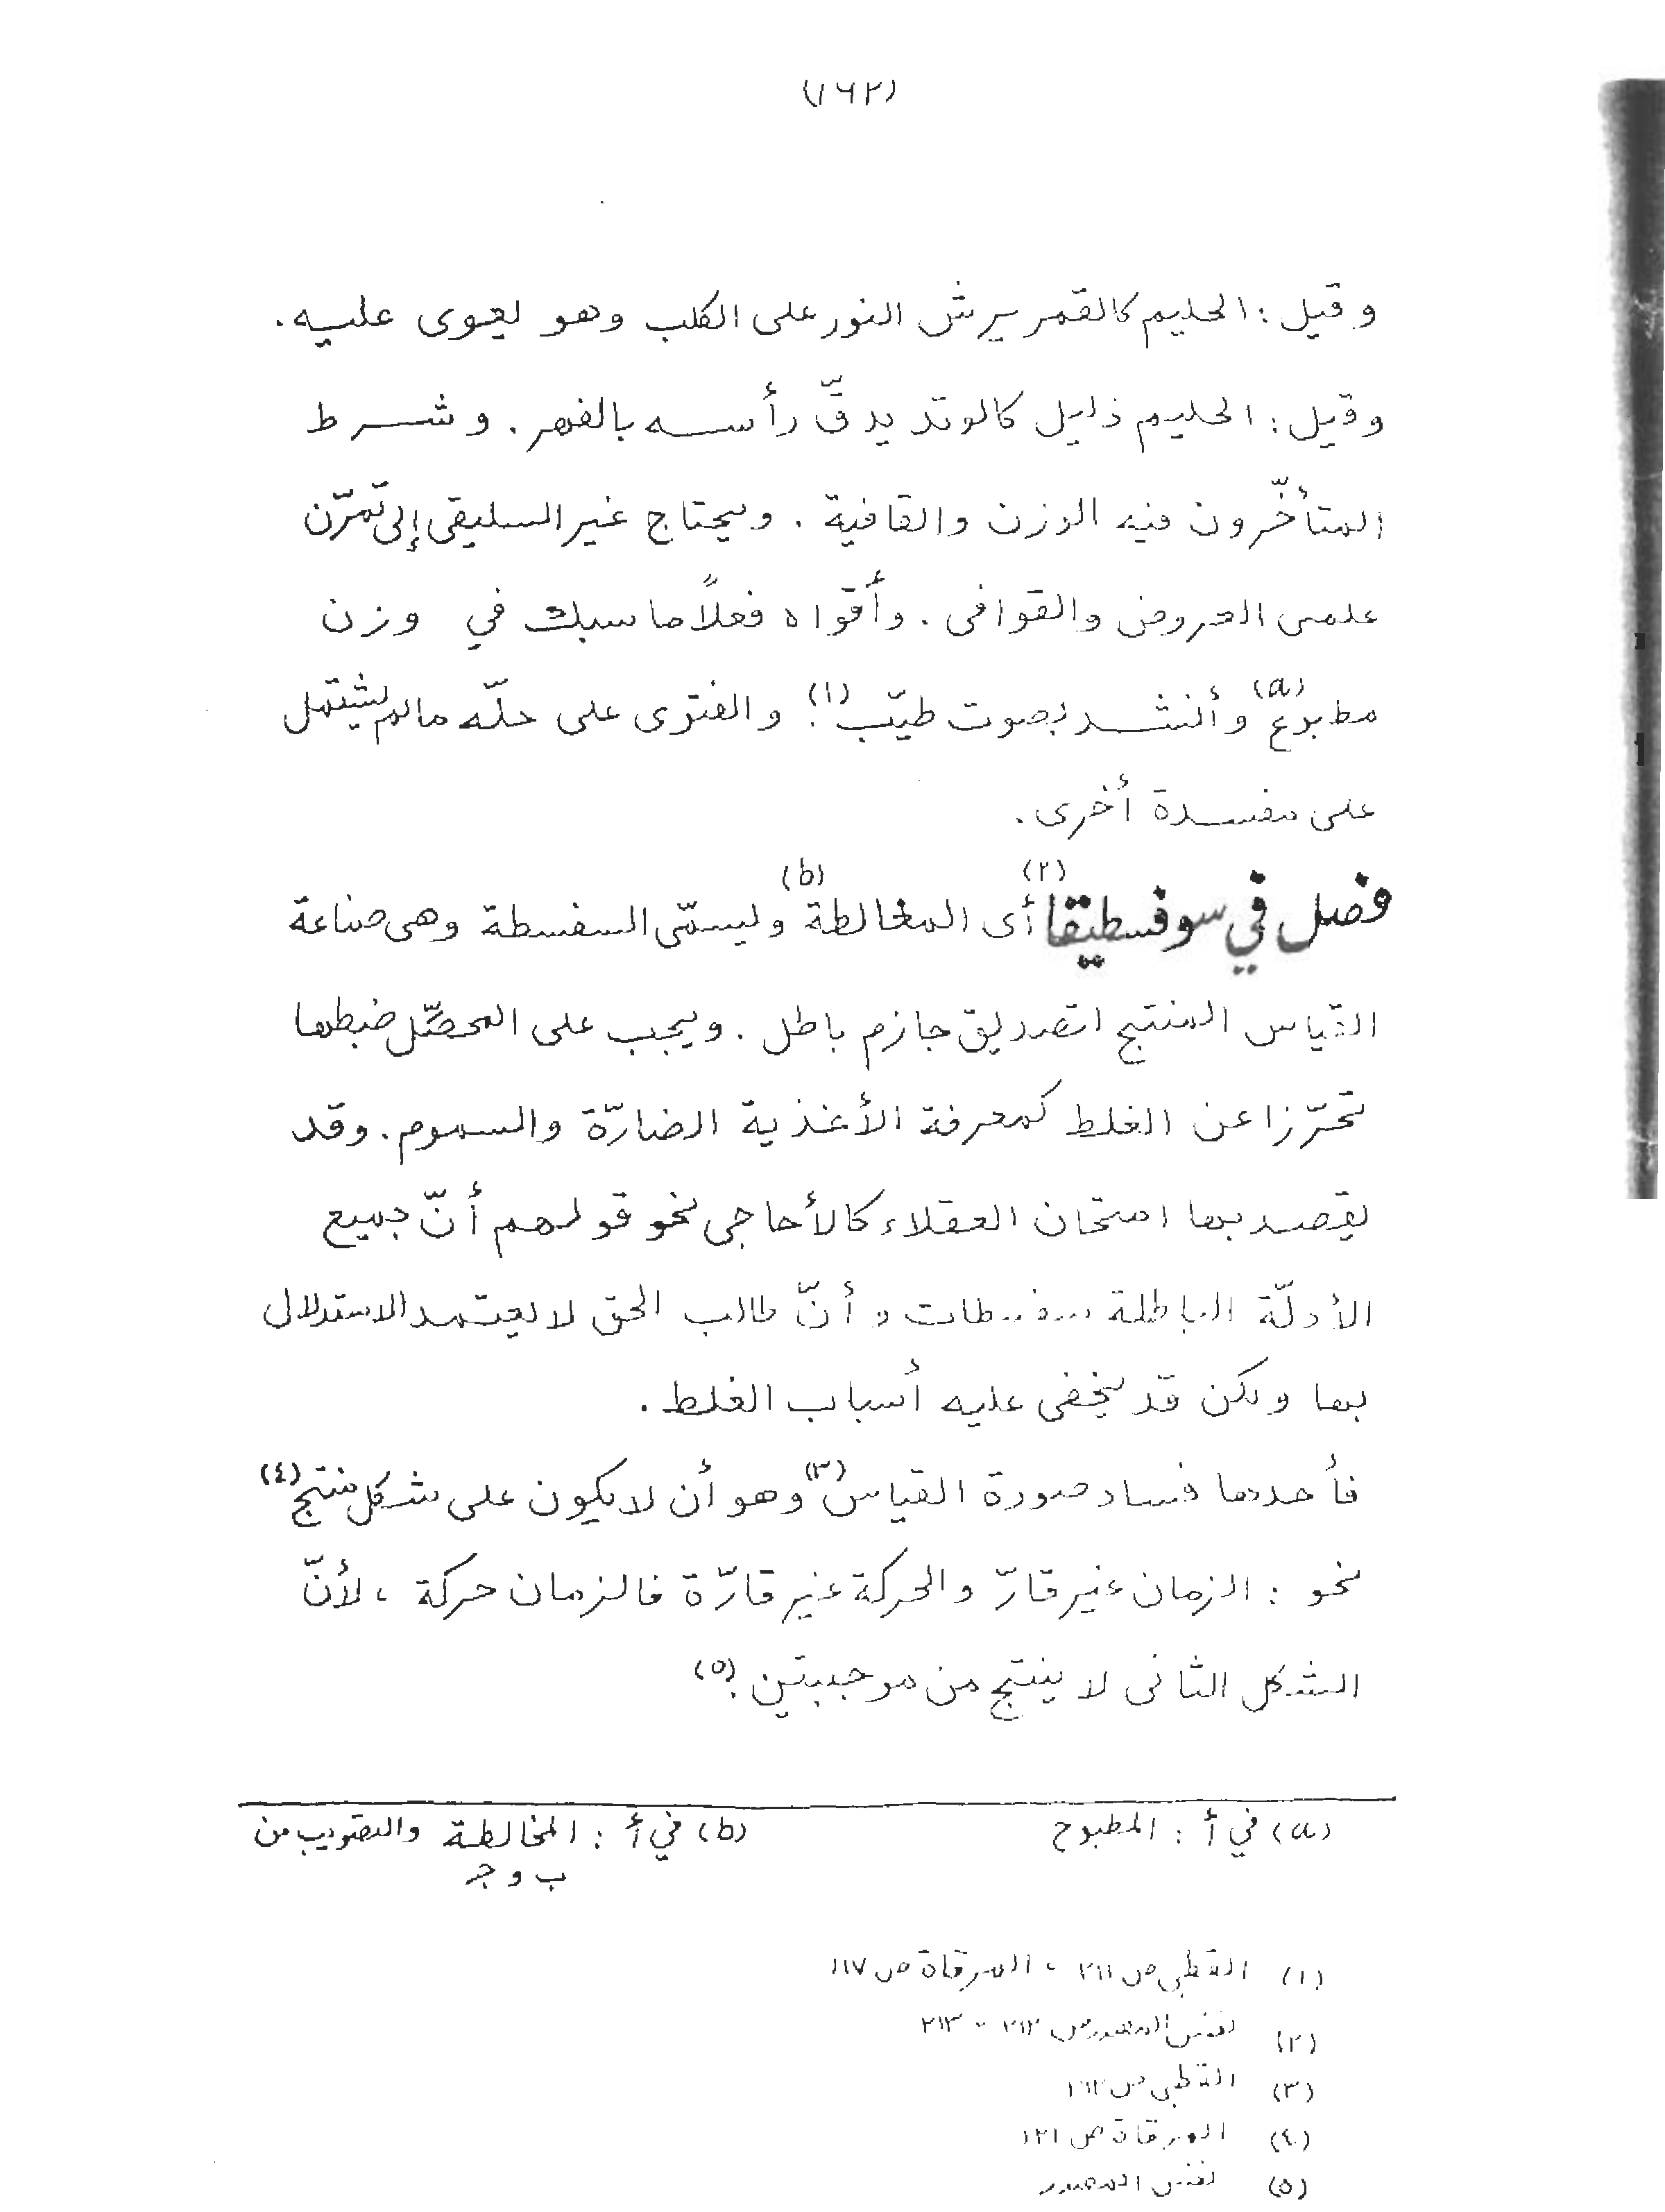 (١٦٢)
وقيل : الحليم كالقمر يرش النور على الكلب وهو يعوى عليه .
وقيل : الحليم ذليل كالوتد يدقّ رأسه بالفهر . وشرط
المتأخّرون فيه الوزن والقافية . ويحتاج غير السليقى إلى تمرّن
علمى العروض والقوافى . وأقواه فعلاً ما سبك في وزن
مطبوع (a) وأنشد بصوت طيّب (١) . والفتوى على حلّه ما لم يشتمل
على مفسدة أخرى .
فصل في سوفسطيقا (٢) أى المغالطة (b) ويسمّى السفسطة وهى صناعة
القياس المنتج لتصديق جازم باطل . ويجب على المحصّل ضبطها
تحرّزا عن الغلط كمعرفة الأغذية الضارّة والسموم . وقد
يقصد بها امتحان العقلاء كالأحاجى نحو قولهم أنّ جميع
الأدلّة الباطلة سفسطات وأنّ طالب الحق لا يعتمد الاستدلال
بها ولكن قد يخفى عليه أسباب الغلط .
فأحدها فساد صورة القياس (٣) وهو أن لا يكون على شكل منتج (٤)
نحو : الزمان غير قارّ والحركة غير قارّة فالزمان حركة ، لأنّ
الشكل الثانى لا ينتج من موجبتين . (٥)
(a) في أ : المطبوح (b) في أ : المخالطة والتصويب من
ب و جـ
(١) القطبى ص ٢١١ ، المرقاة ص ١١٧
(٢) نفس المصدر ص ٢١٢ - ٢١٣
(٣) القطبى ص
(٤) المرقاة ص ١٢١
(٥) نفس المصدر